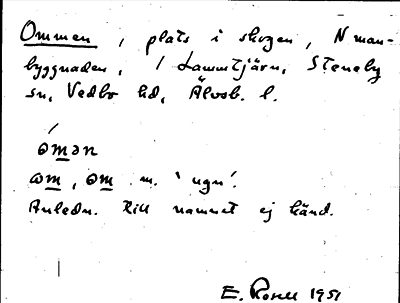 Ommen, plats i skogen, N man-
byggnaden, 1 Lammtjärn, Steneby
sn, Vedbo hd, Älvsb. l.
ómən
ɷm, əm m. 'ugn'.
Anledn. till namnet ej känd.
E. Rosell 1951